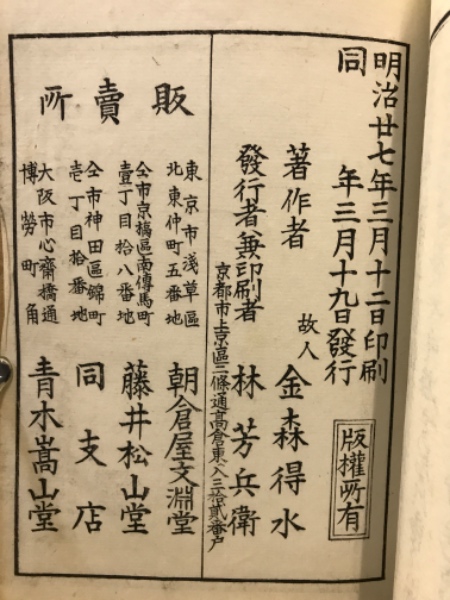 明治廿七年三月十二日印刷
同年三月十九日發行
版權所有
著作者 故人 金森得水
發行者兼印刷者 林芳兵衛
京都市上京區二條通高倉東入三拾貳番戶
販賣所
東京市淺草區
北東仲町五番地
朝倉屋文淵堂
仝市京橋區南傳馬町
壹丁目拾八番地
藤井松山堂
仝市神田區錦町
壱丁目拾番地
同支店
大阪市心齋橋通
博勞町角
青木嵩山堂